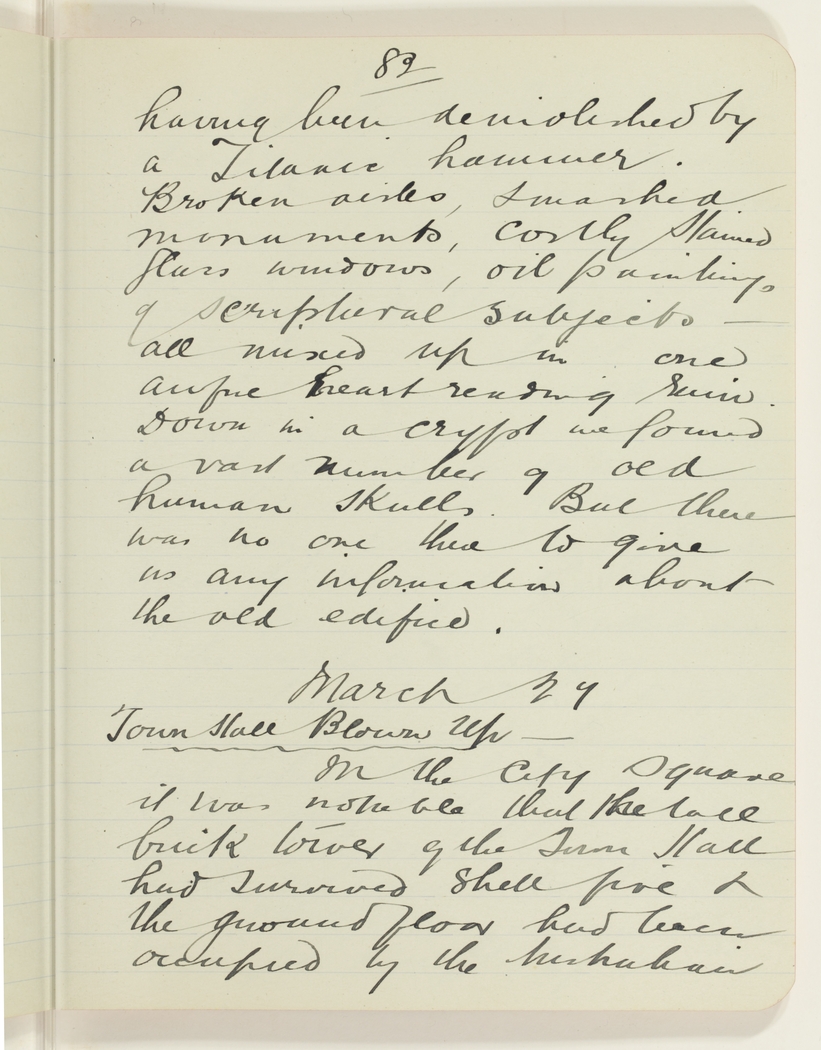 82
having been demolished by
a Titanic hammer.
Broken aisles, smashed
monuments, costly stained
glass windows, oil paintings
of scriptural subjects —
all mixed up in one
awful heart rending ruin.
Down in a crypt we found
a vast number of old
human skulls. But there
was no one there to give
us any information about
the old edifice.
March 29
Town Hall Blown Up —
In the City Square
it was notable that the tall
brick tower of the Town Hall
had survived shell fire &
the ground floor had been
occupied by the Australian